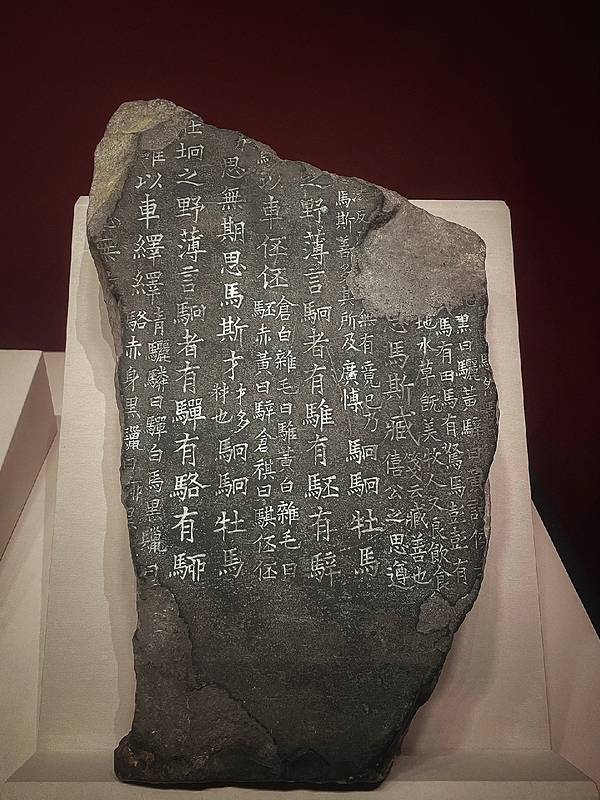 黑曰驪黃騂曰黃諸侯
馬有田馬有駑馬彭彭有
地水草既美牧人又良飲食
思馬斯臧 箋云臧善也
僖公之思遵
反
無有竟已乃
馬斯善多其所及廣博
駉駉牡馬
之野薄言駉者有騅有駓有騂
以車伾伾 倉白雜毛曰騅黃白雜毛曰
駓赤黃曰騂倉祺曰騏伾伾
思無期思馬斯才 才多
材也 駉駉牡馬
在坰之野薄言駉者有驒有駱有駵
雒以車繹繹 青驪驎曰驒白馬黑鬣曰
駱赤身黑鬣曰
無